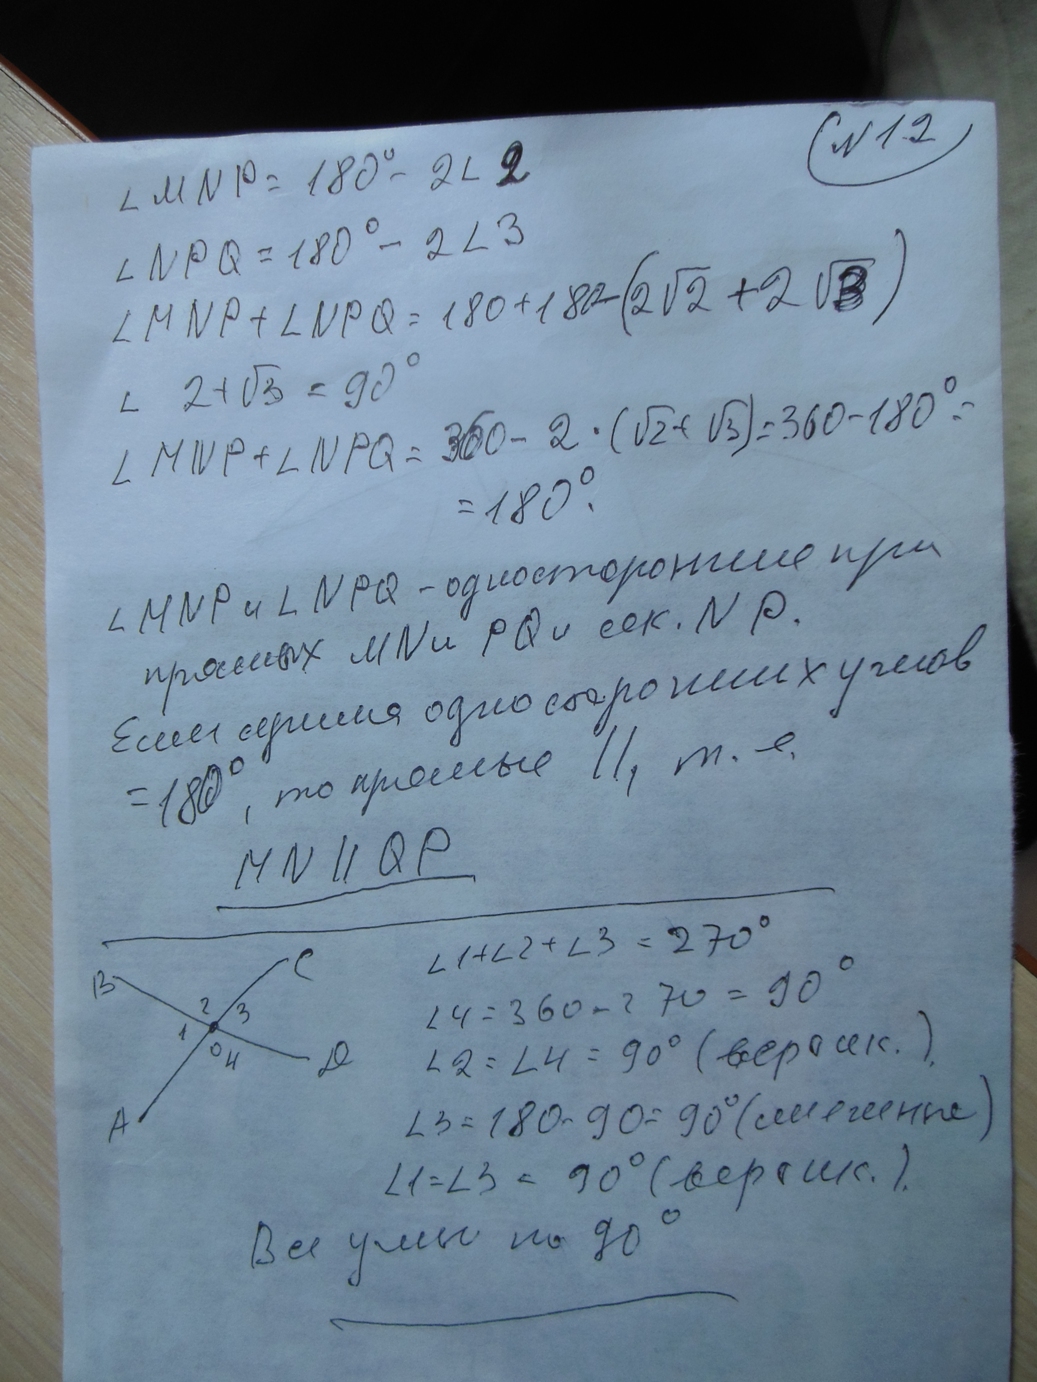 N12
∠MNP = 180° - 2∠2
∠NPQ = 180° - 2∠3
∠MNP + ∠NPQ = 180 + 180 - (2√2 + 2√3)
∠ 2 + √3 = 90°
∠MNP + ∠NPQ = 360 - 2 · (√2 + √3) = 360 - 180° =
= 180°.
∠MNP и ∠NPQ - односторонние при
прямых MN и PQ и сек. NP.
Если сумма односторонних углов
= 180°, то прямые ||, т. е.
MN || QP
∠1 + ∠2 + ∠3 = 270°
∠4 = 360 - 270 = 90°
∠2 = ∠4 = 90° (вертик.).
∠3 = 180 - 90 = 90° (смежные)
∠1 = ∠3 = 90° (вертик.).
Все углы по 90°
B C
2
1 3
O 4
A D